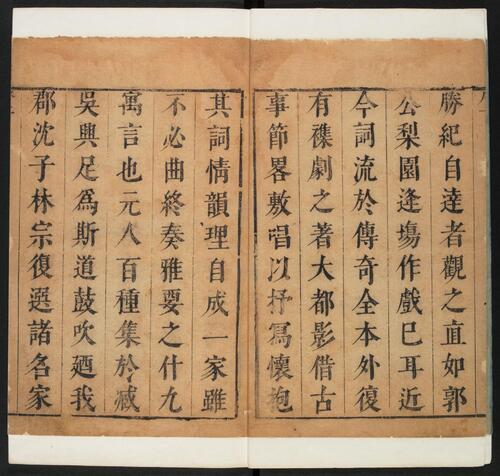 勝紀自達者觀之直如郭
公梨園逢塲作戲巳耳近
今詞流於傳奇全本外復
有襍劇之著大都影借古
事節畧敷唱以抒寫懷抱
其詞情韻理自成一家雖
不必曲終奏雅要之什九
寓言也元人百種集於臧
吳興足爲斯道鼓吹廼我
郡沈子林宗復選諸名家